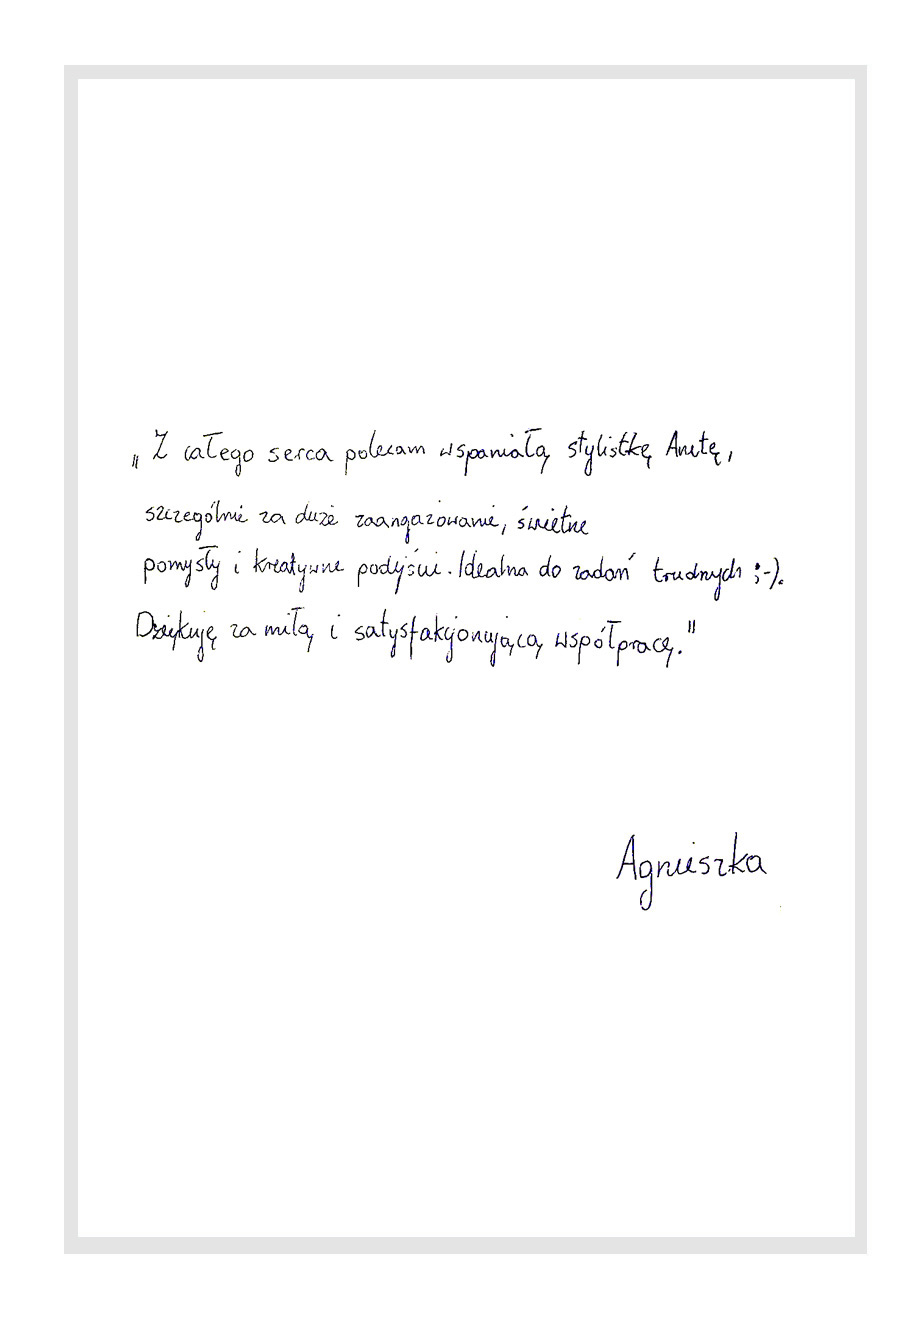 „Z całego serca polecam wspaniałą stylistkę Anetę,
szczególnie za duże zaangażowanie, świetne
pomysły i kreatywne podejście. Idealna do zadań trudnych ;-).
Dziękuję za miłą i satysfakcjonującą współpracę."
Agnieszka